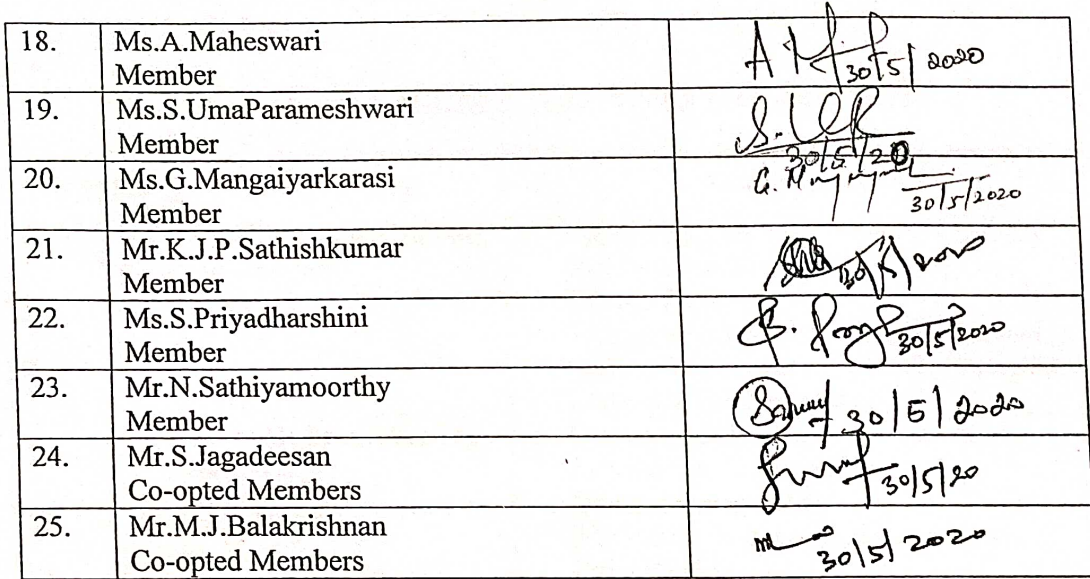 18. Ms.A.Maheswari
Member
30/5/2020
19. Ms.S.UmaParameshwari
Member
30/5/20
20. Ms.G.Mangaiyarkarasi
Member
30/5/2020
21. Mr.K.J.P.Sathishkumar
Member
30/5/2020
22. Ms.S.Priyadharshini
Member
30/5/2020
23. Mr.N.Sathiyamoorthy
Member
30/5/2020
24. Mr.S.Jagadeesan
Co-opted Members
30/5/20
25. Mr.M.J.Balakrishnan
Co-opted Members
30/5/2020